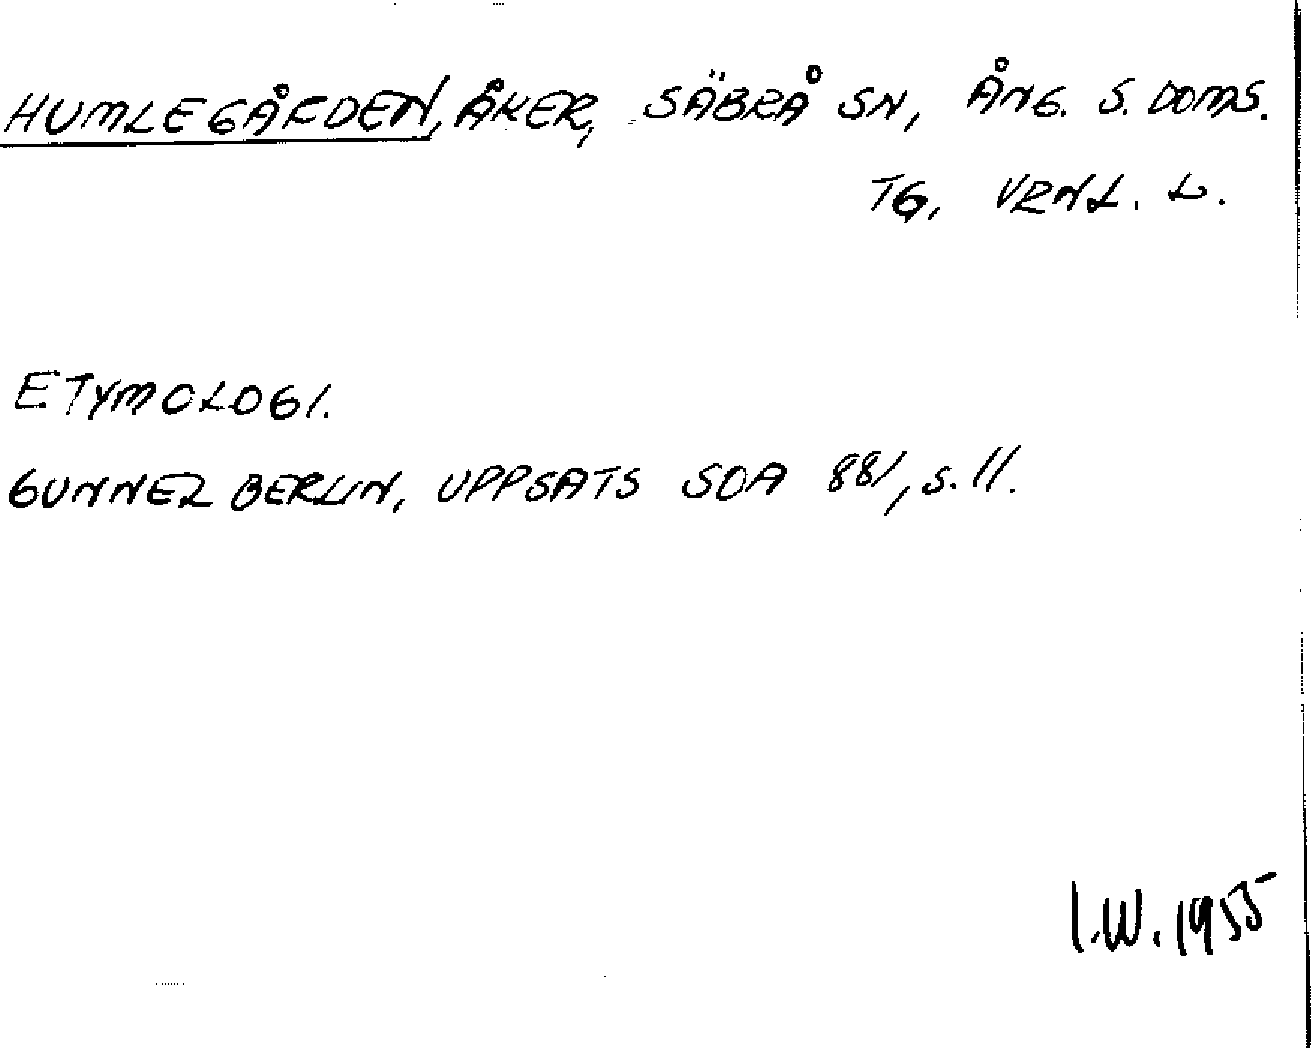 HUMLEGÅRDEN, ÅKER, SÄBRÅ SN, ÅNG. S. DOMS.
TG, VRNL. L.
ETYMOLOGI.
GUNNEL BERLIN, UPPSATS SOA 881, s. 11.
I.W. 1955